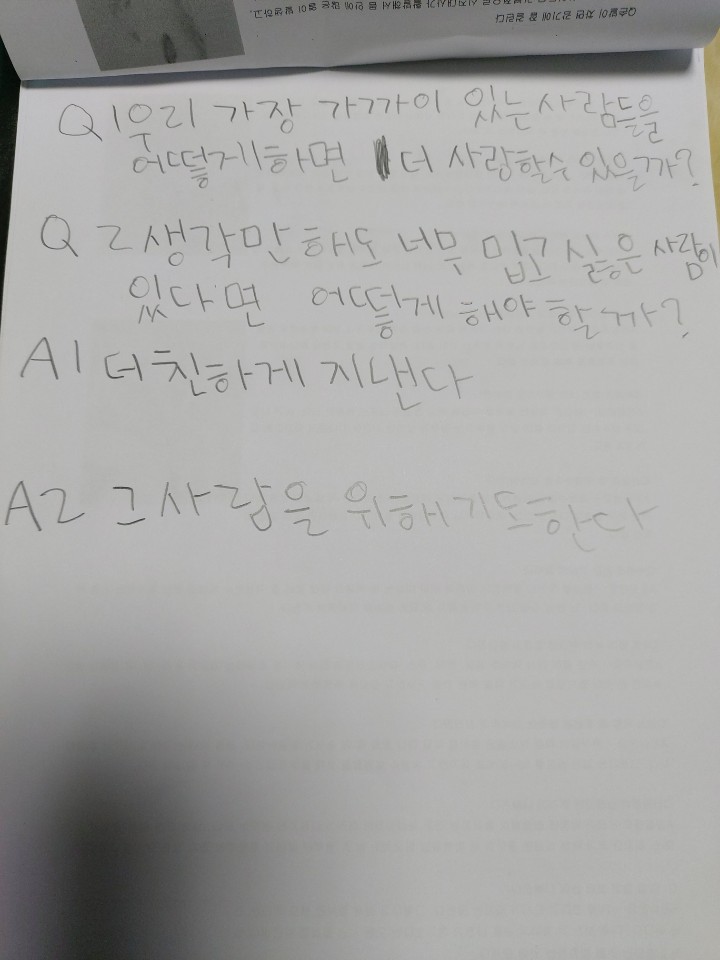 Q1 우리 가장 가까이 있는 사람들을
어떻게하면 더 사랑할수 있을까?
Q2 생각만 해도 너무 밉고 싫은 사람이
있다면 어떻게 해야 할까?
A1 더 친하게 지낸다
A2 그사람을 위해 기도한다